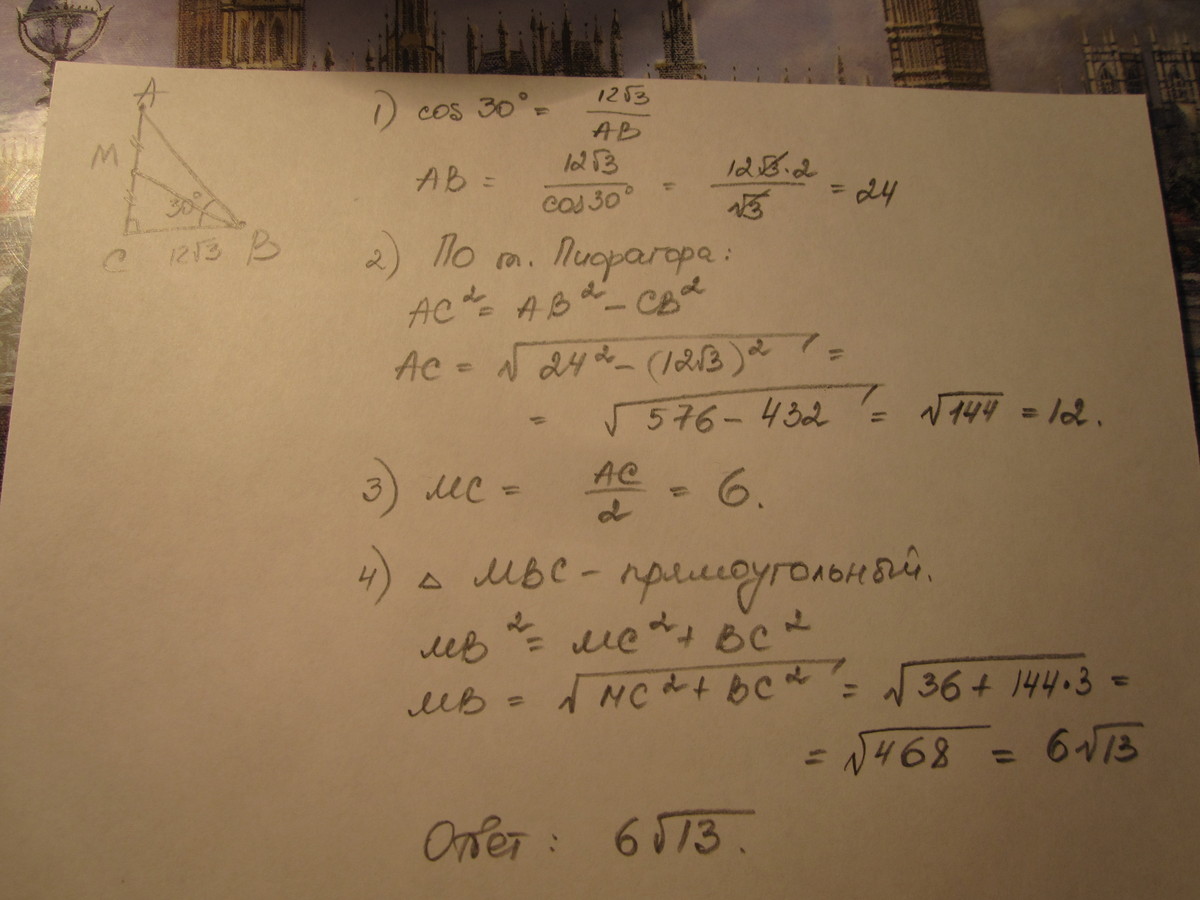 A
M
30°
C
12√3
B
1) cos 30° = 12√3 / AB
AB = 12√3 / cos30° = 12√3·2 / √3 = 24
2) По т. Пифагора:
AC² = AB² – CB²
AC = √(24² – (12√3)²) =
= √(576 – 432) = √144 = 12.
3) MC = AC / 2 = 6.
4) △ MBC – прямоугольный.
MB² = MC² + BC²
MB = √(MC² + BC²) = √(36 + 144·3) =
= √468 = 6√13
Ответ: 6√13.